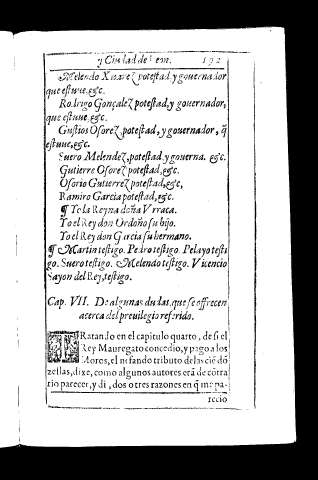 y Ciudad de Leon. 192
Melendo Xuarez potestad, y governador
que estuue, &c.
Rodrigo Gonçalez potestad, y governador,
que estuue, &c.
Gustios Osorez potestad, y governador, q̃
estuue, &c.
Suero Melendez, potestad, y governa. &c.
Gutierre Osorez potestad, &c,
Osorio Gutierrez potestad, &c,
Ramiro Garcia potestad, &c,
¶ Yo la Reyna doña Vrraca.
Yo el Rey don Ordoño su hijo.
Yo el Rey don Garcia su hermano.
¶ Martin testigo. Pedro testigo. Pelayo testi
go. Suero testigo. Melendo testigo. Vicencio
Sayon del Rey, testigo.
Cap. VII. De algunas dudas, que se offrecen
acerca del preuilegio referido.
TRatando en el capitulo quarto, de si el
Rey Mauregato concedio, y pago a los
Moros, el nefando tributo de las ciẽ dõ
zellas, dixe, como algunos autores erã de cõtra
rio parecer, y di, dos o tres razones en q̃ me pa-
recio